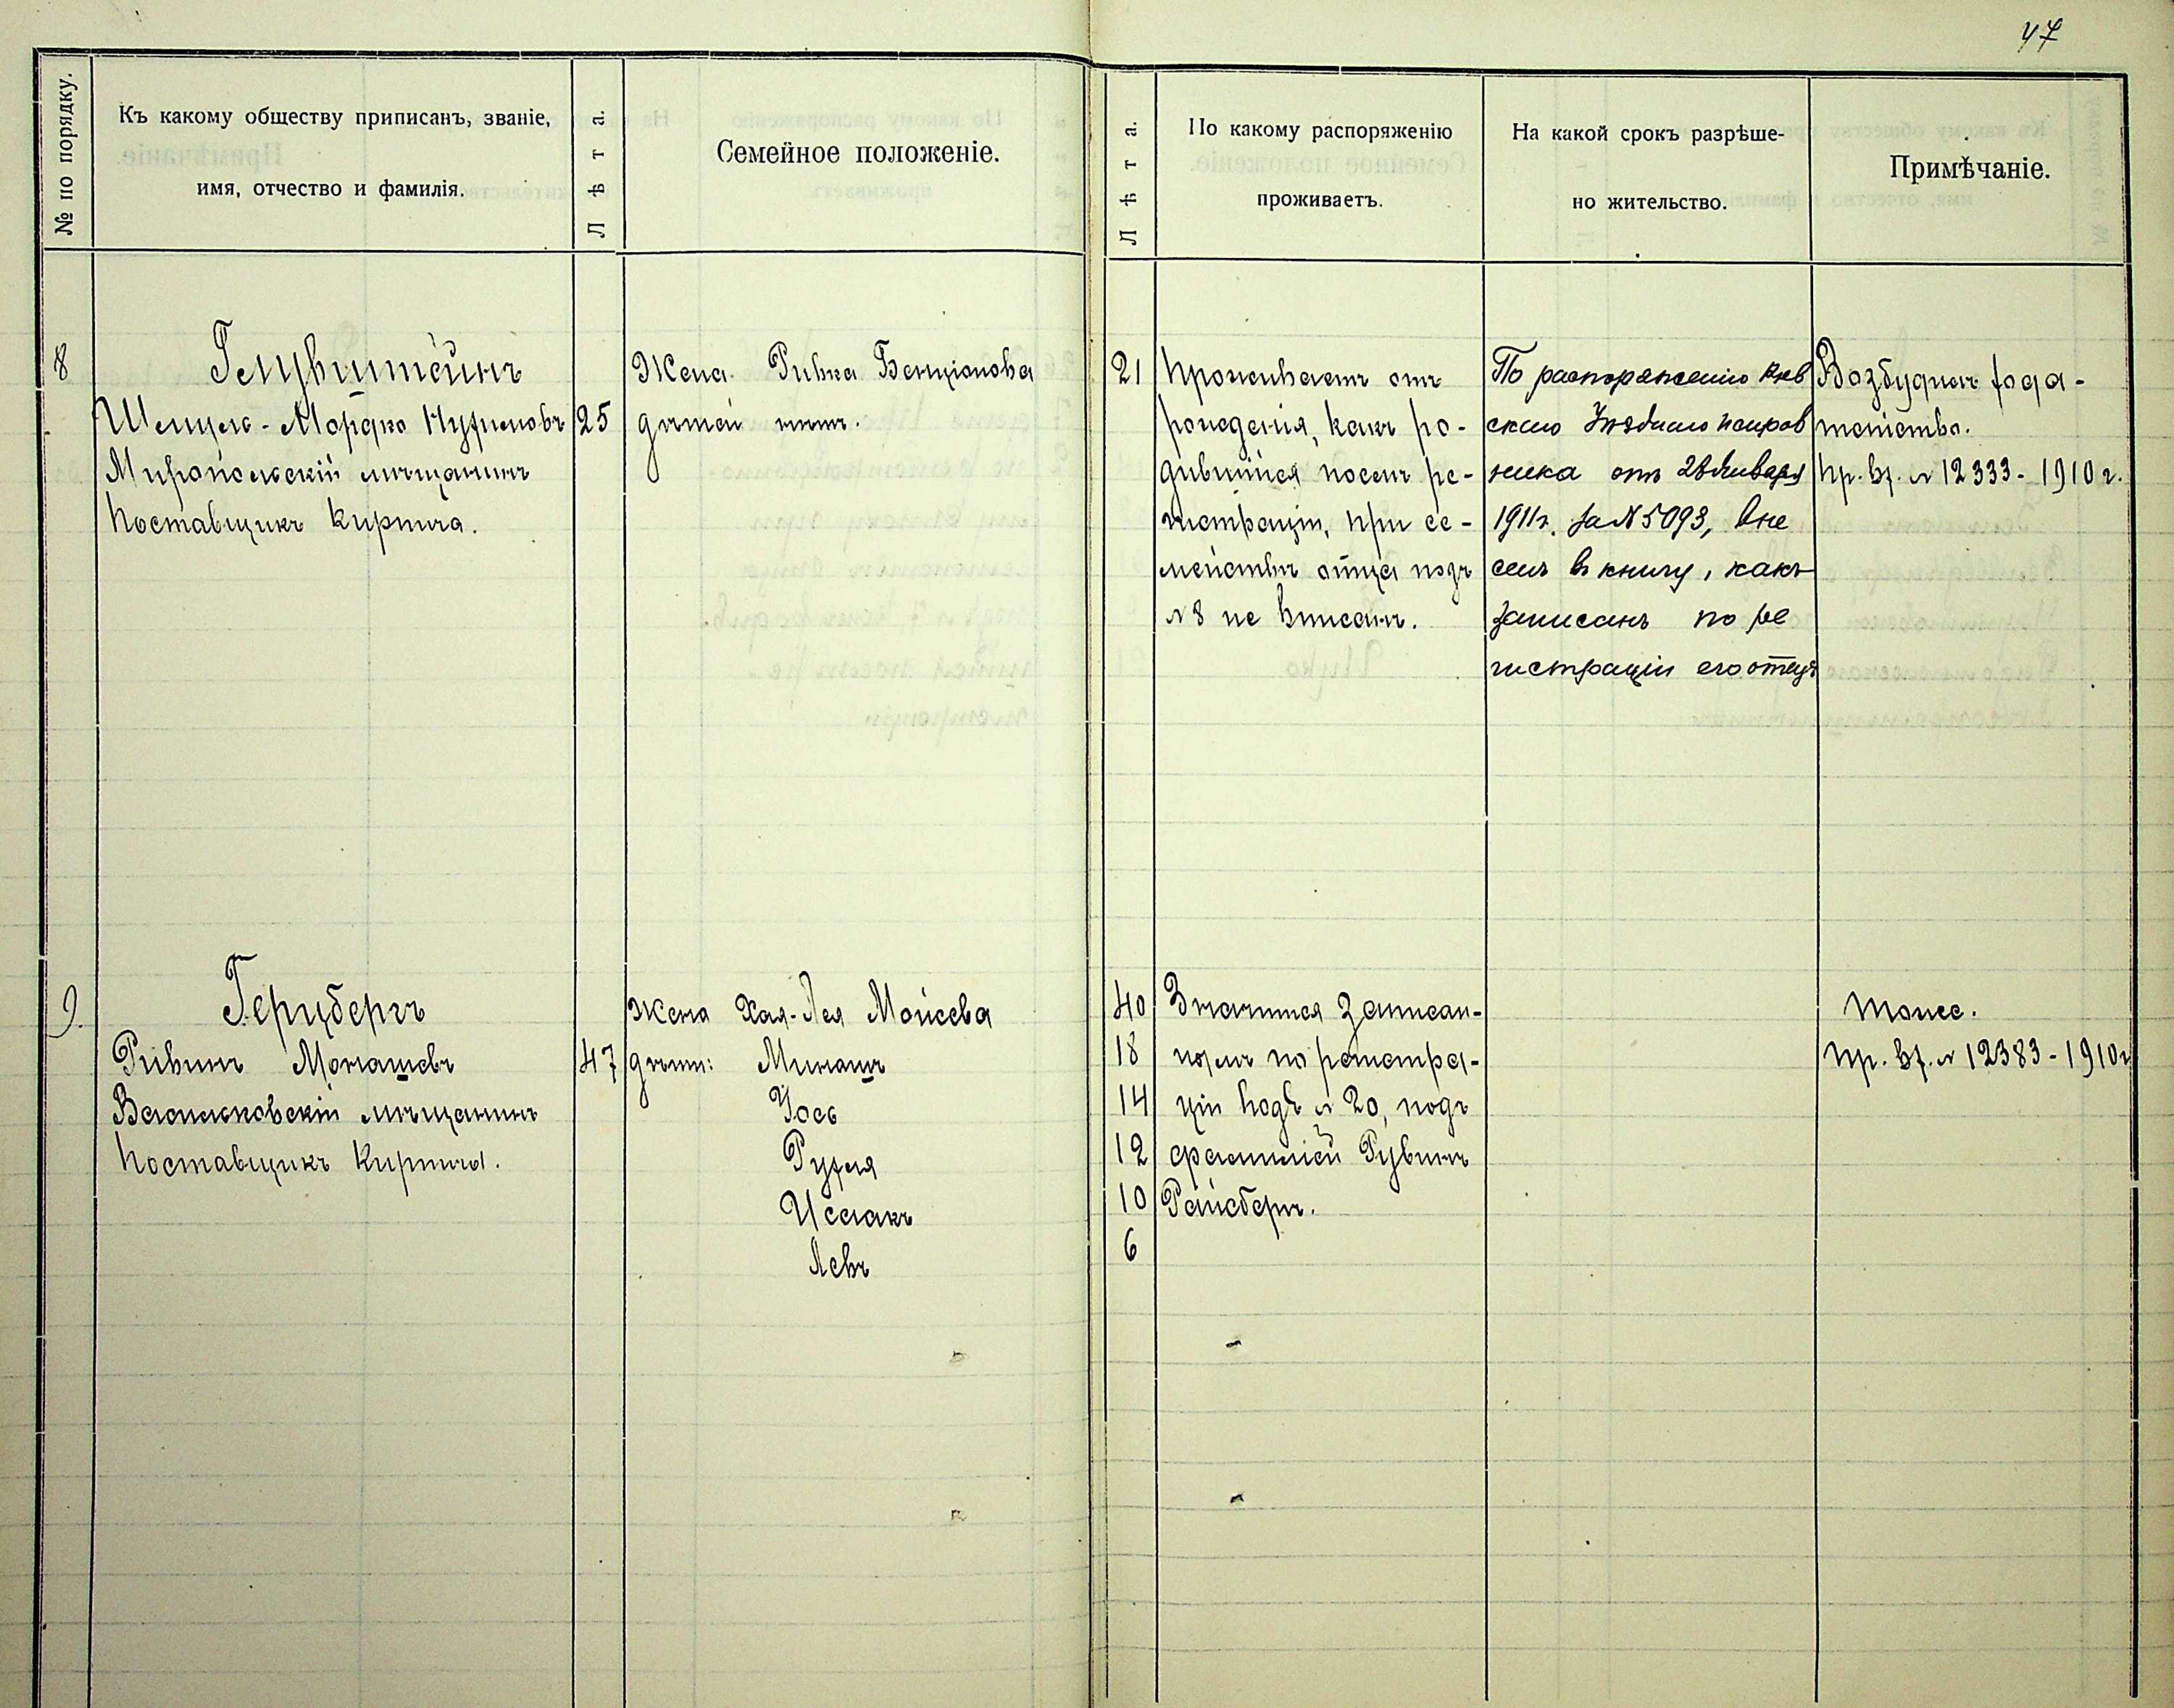 47
№ по порядку.
Къ какому обществу приписанъ, званіе,
имя, отчество и фамилія.
Лѣта.
Семейное положеніе.
Лѣта.
По какому распоряженію
проживаетъ.
На какой срокъ разрѣше-
но жительство.
Примѣчаніе.
8
Шмуль-Мордко
Миропольскій мѣщанинъ
Поставщикъ кирпича.
25
Жена Ривка Бенціонова
дѣтей нѣтъ.
21
Проживаетъ отъ
рожденія, какъ ро-
дившійся послѣ ре-
гистраціи, при се-
мействѣ отца подъ
№ 8 не вписанъ.
По распоряженію Кіев
скаго Уѣзднаго исправ
ника отъ 28 Января
1911 г. за № 5093, вне
сенъ в книгу, какъ
записанъ по ре
гистраціи его отецъ
Возбудилъ хода-
тайство.
Пр. вх. № 12333 - 1910 г.
9.
Герцбергъ
Рувинъ Монашевъ
Васильковскій мѣщанинъ
Поставщикъ кирпича.
47
Жена Хая-Лея Мойсева
дѣти: Минашъ
Іось
Рухля
Исаакъ
Левъ
40
18
14
12
10
6
Значится записан-
нымъ по регистра-
ціи подъ № 20, подъ
фамиліей Рувинъ
Райсбергъ.
Тоже.
Пр. вх. № 12383 - 1910 г